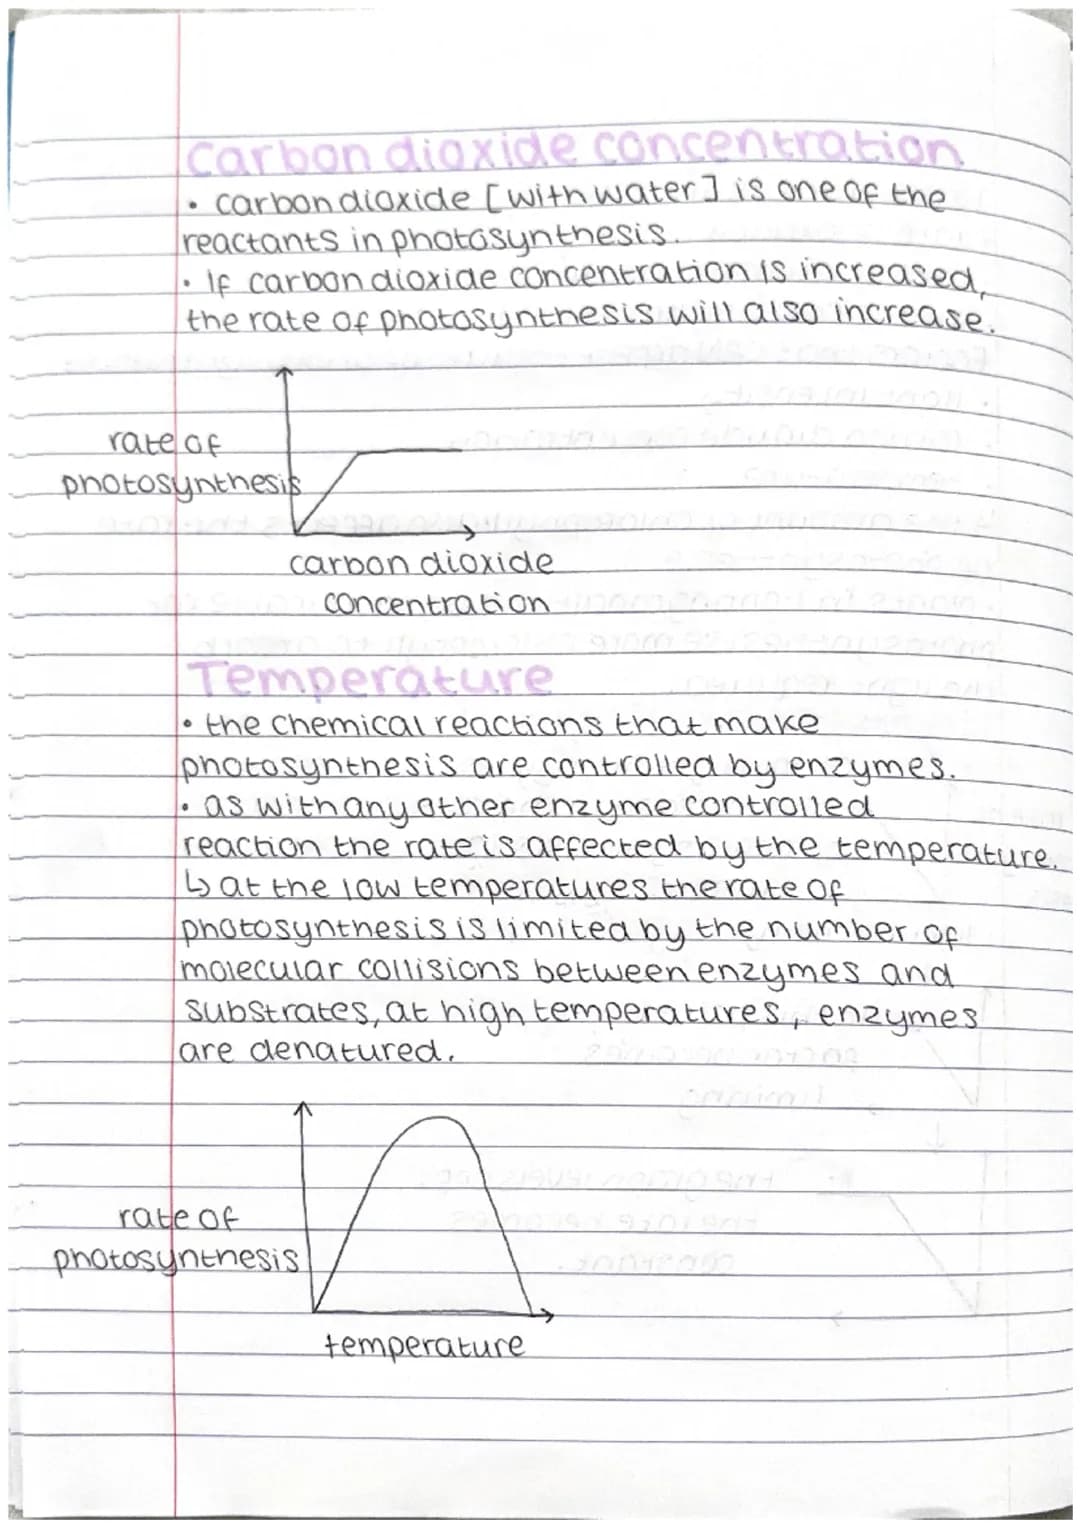 Carbon dioxide concentration
• carbon dioxide [with water] is one of the
reactants in photosynthesis.
• If carbon dioxide concentration is increased,
the rate of photosynthesis will also increase.
rate of
photosynthesis
carbon dioxide
concentration
Temperature
• the chemical reactions that make
photosynthesis are controlled by enzymes.
• as with any other enzyme controlled
reaction the rate is affected by the temperature.
↳ at the low temperatures the rate of
photosynthesis is limited by the number of
molecular collisions between enzymes and
substrates, at high temperatures, enzymes
are denatured.
rate of
photosynthesis
temperature